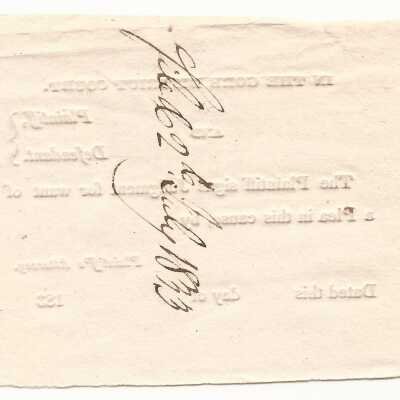 Filed 2d July 1833
IN THE COURT
Plaintiff
and
Defendant
The Plaintiff signs judgment for want of
a Plea in this cause
Plaintiff's Attorney
Dated this day of 183